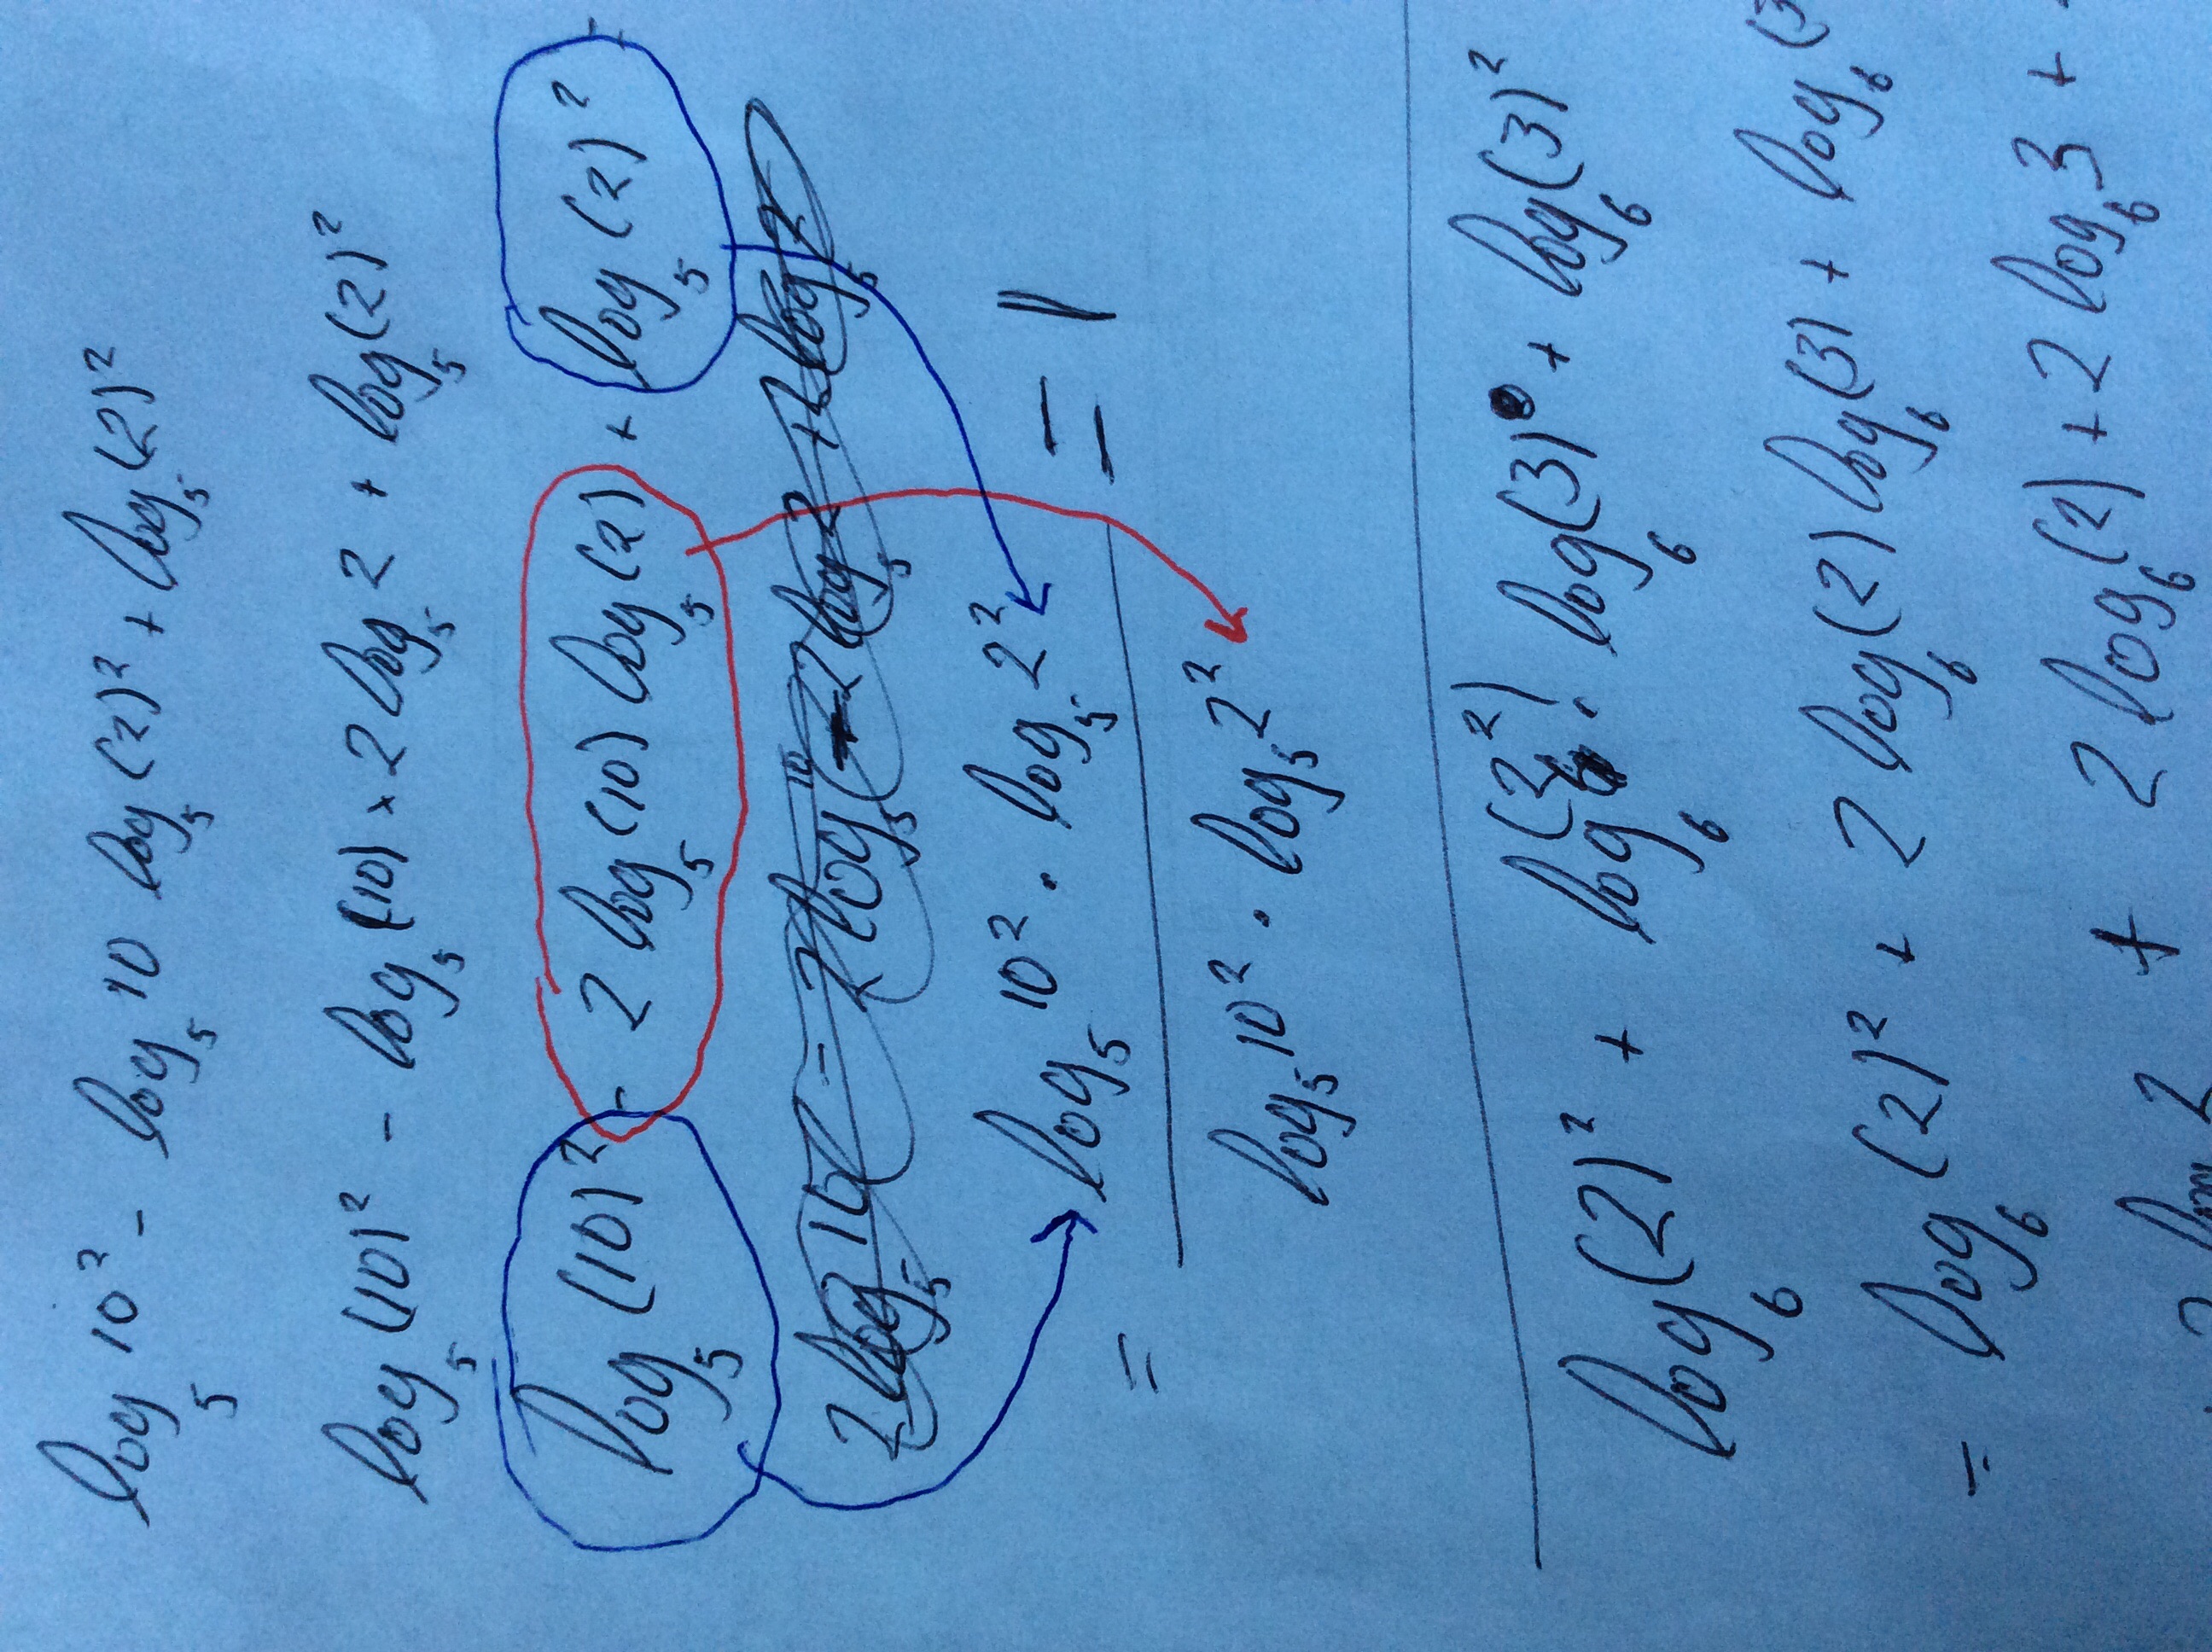 log₅ 10² - log₅ 10 log₅ (2)² + log₅ (2)²
log₅ (10)² - log₅ (10) × 2 log₅ 2 + log₅ (2)²
log₅ (10)² - 2 log₅ (10) log₅ (2) + log₅ (2)²
= log₅ 10² · log₅ 2²
log₅ 10² · log₅ 2²
= 1
log₆ (2)² + log₆ (2²) · log₆ (3) + log₆ (3)²
= log₆ (2)² + 2 log₆ (2) log₆ (3) + log₆ (3
+ 2 log₆ (2) + 2 log₆ 3 +